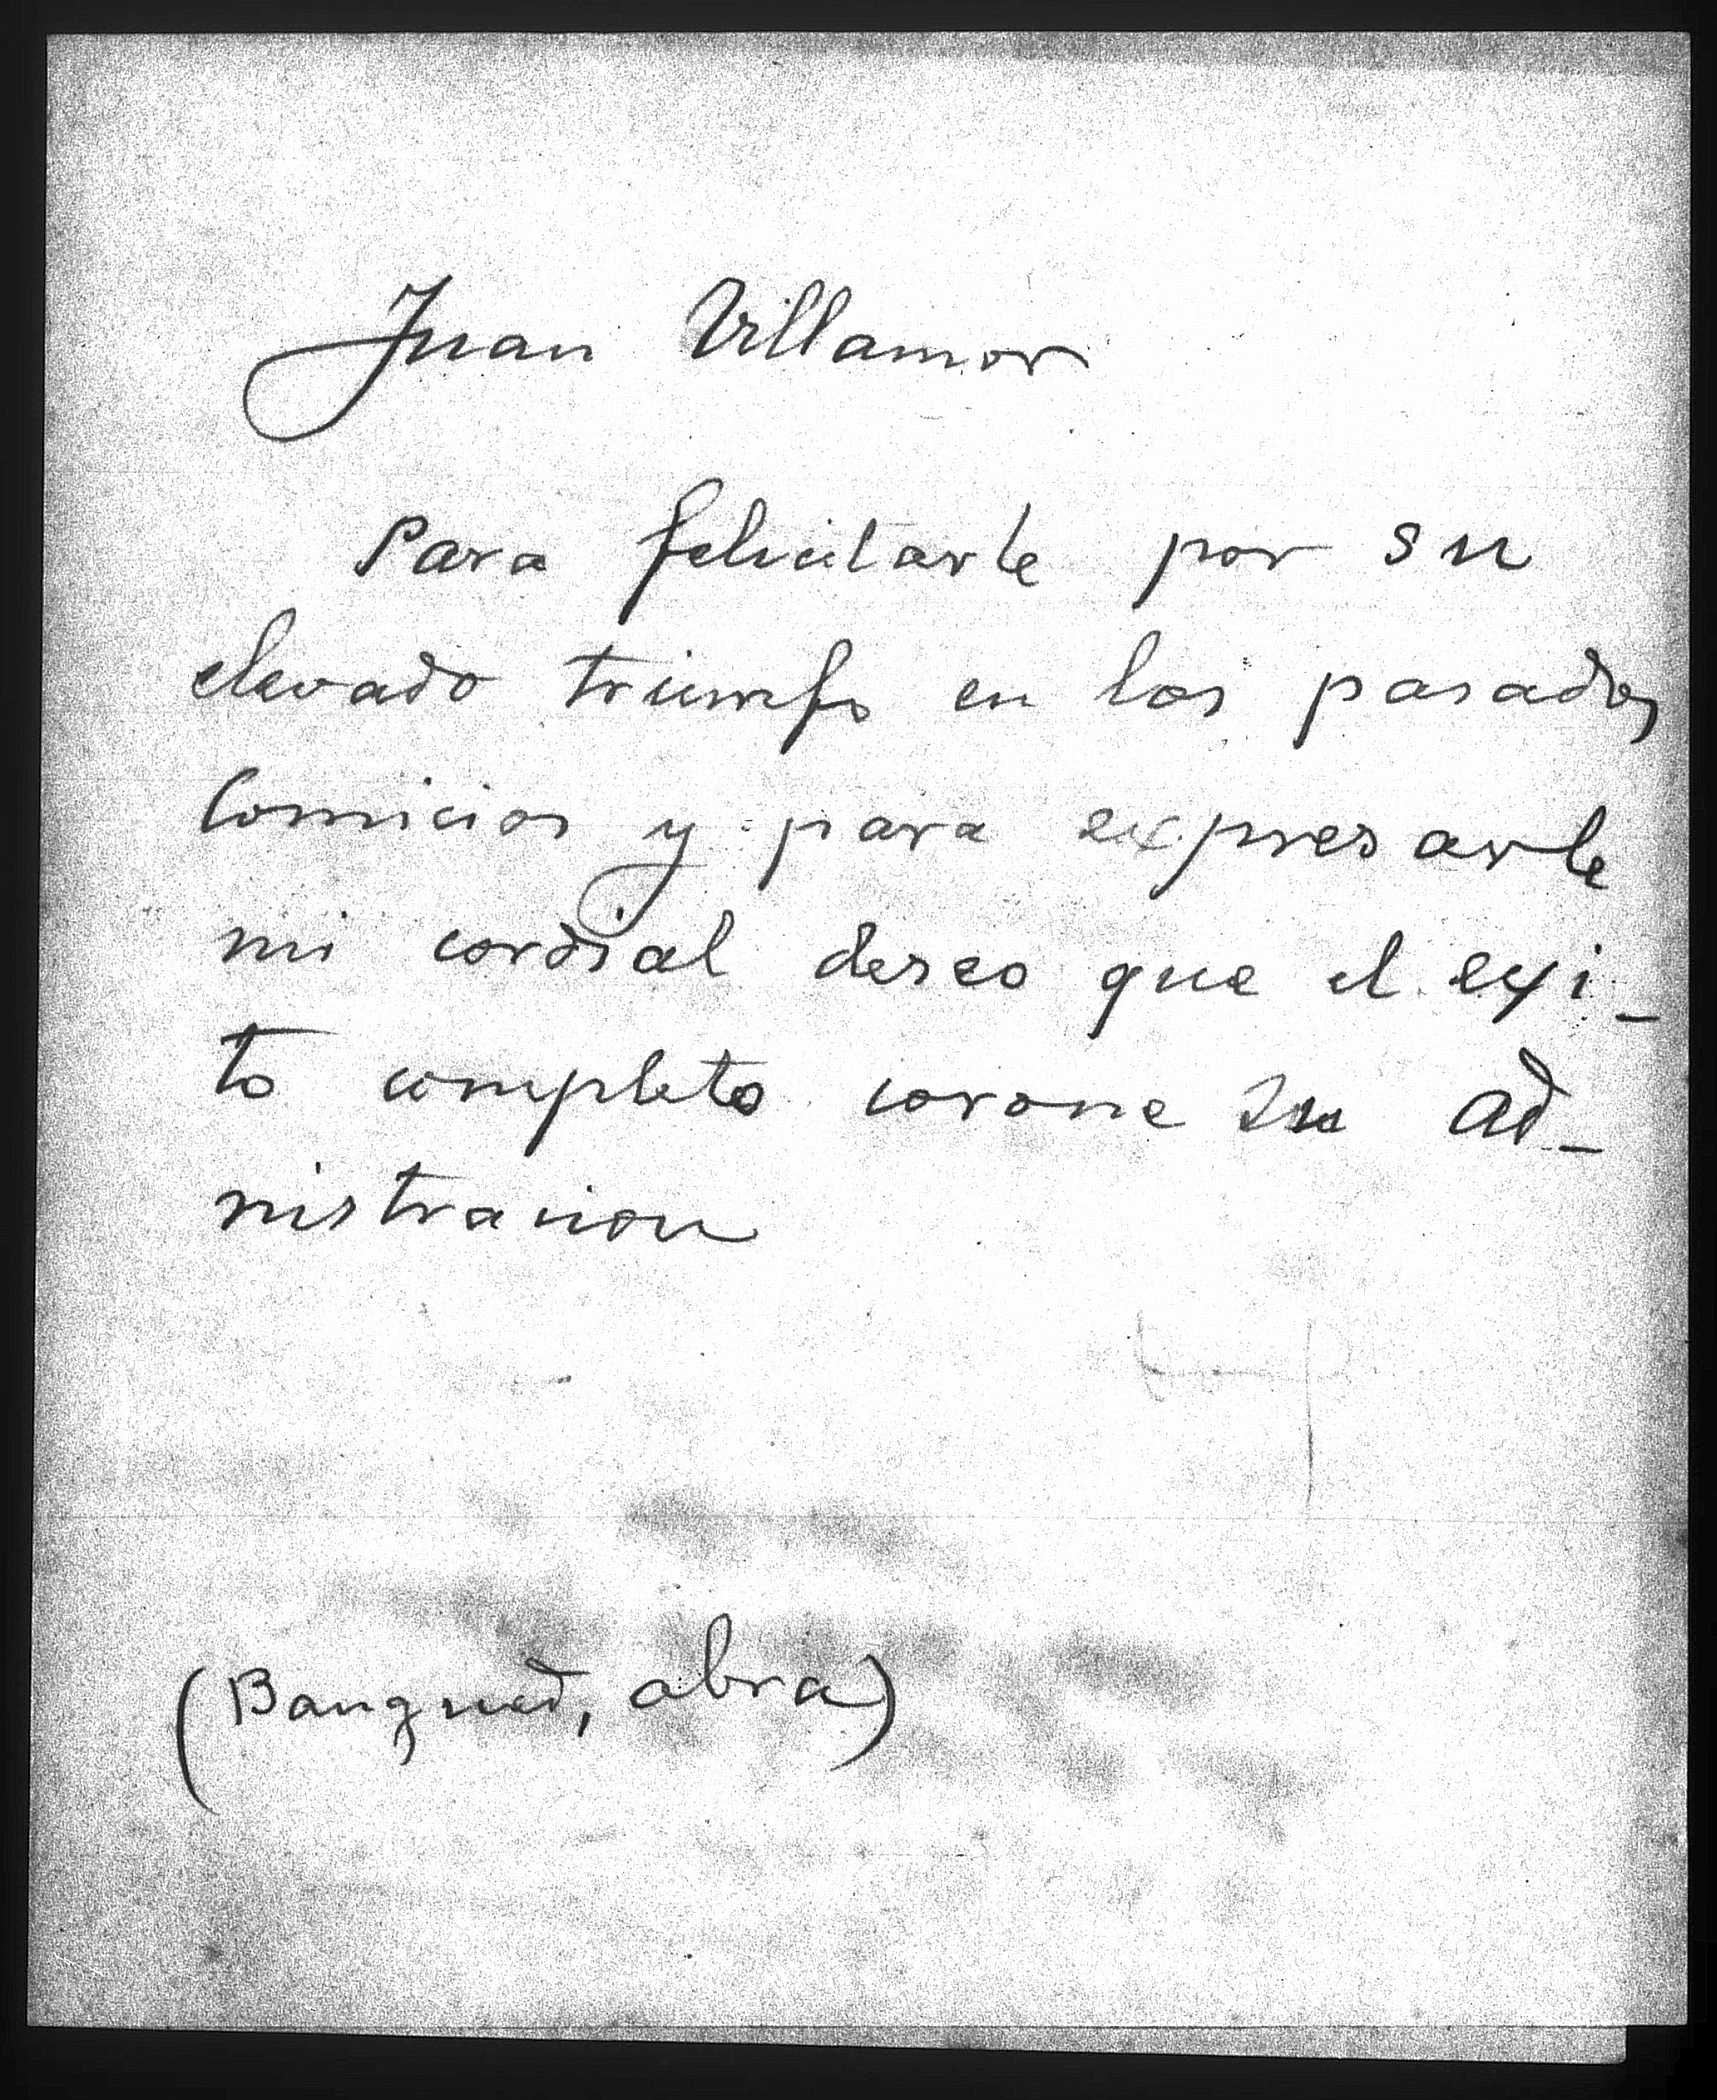 Juan Villamor
Para felicitarle por su
elevado triumfo en los pasados
Comicios y para expresarle
mi cordial deseo que el exi-
to completo corone su ad-
nistracion
(Bangued, abra)